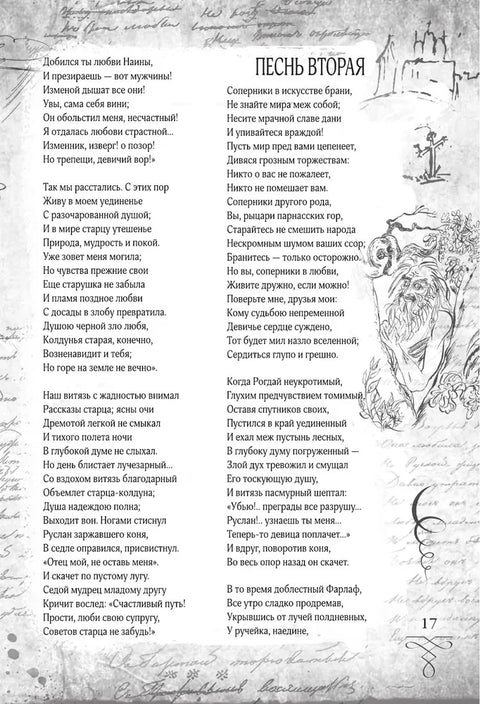 Добился ты любви Наины,
И презираешь — вот мужчины!
Изменой дышат все они!
Увы, сама себя вини;
Он обольстил меня, несчастный!
Я отдалась любови страстной...
Изменник, изверг! о позор!
Но трепещи, девичий вор!»
Так мы расстались. С этих пор
Живу в моем уединенье
С разочарованной душой;
И в мире старцу утешенье
Природа, мудрость и покой.
Уже зовет меня могила;
Но чувства прежние свои
Еще старушка не забыла
И пламя позднее любви
С досады в злобу превратила.
Душою черной зло любя,
Колдунья старая, конечно,
Возненавидит и тебя;
Но горе на земле не вечно».
Наш витязь с жадностью внимал
Рассказы старца; ясны очи
Дремотой легкой не смыкал
И тихого полета ночи
В глубокой думе не слыхал.
Но день блистает лучезарный...
Со вздохом витязь благодарный
Объемлет старца-колдуна;
Душа надеждою полна;
Выходит вон. Ногами стиснул
Руслан заржавшего коня,
В седле оправился, присвистнул.
«Отец мой, не оставь меня».
И скачет по пустому лугу.
Седой мудрец младому другу
Кричит вослед: «Счастливый путь!
Прости, люби свою супругу,
Советов старца не забудь!»
ПЕСНЬ ВТОРАЯ
Соперники в искусстве брани,
Не знайте мира меж собой;
Несите мрачной славе дани
И упивайтеся враждой!
Пусть мир пред вами цепенеет,
Дивяся грозным торжествам:
Никто о вас не пожалеет,
Никто не помешает вам.
Соперники другого рода,
Вы, рыцари парнасских гор,
Старайтесь не смешить народа
Нескромным шумом ваших ссор;
Бранитесь — только осторожно.
Но вы, соперники в любви,
Живите дружно, если можно!
Поверьте мне, друзья мои:
Кому судьбою непременной
Девичье сердце суждено,
Тот будет мил назло вселенной;
Сердиться глупо и грешно.
Когда Рогдай неукротимый,
Глухим предчувствием томимый,
Оставя спутников своих,
Пустился в край уединенный
И ехал меж пустынь лесных,
В глубоку думу погруженный —
Злой дух тревожил и смущал
Его тоскующую душу,
И витязь пасмурный шептал:
«Убью!.. преграды все разрушу...
Руслан!.. узнаешь ты меня...
Теперь-то девица поплачет...»
И вдруг, поворотив коня,
Во весь опор назад он скачет.
В то время доблестный Фарлаф,
Все утро сладко продремав,
Укрывшись от лучей полдневных,
У ручейка, наедине,
17